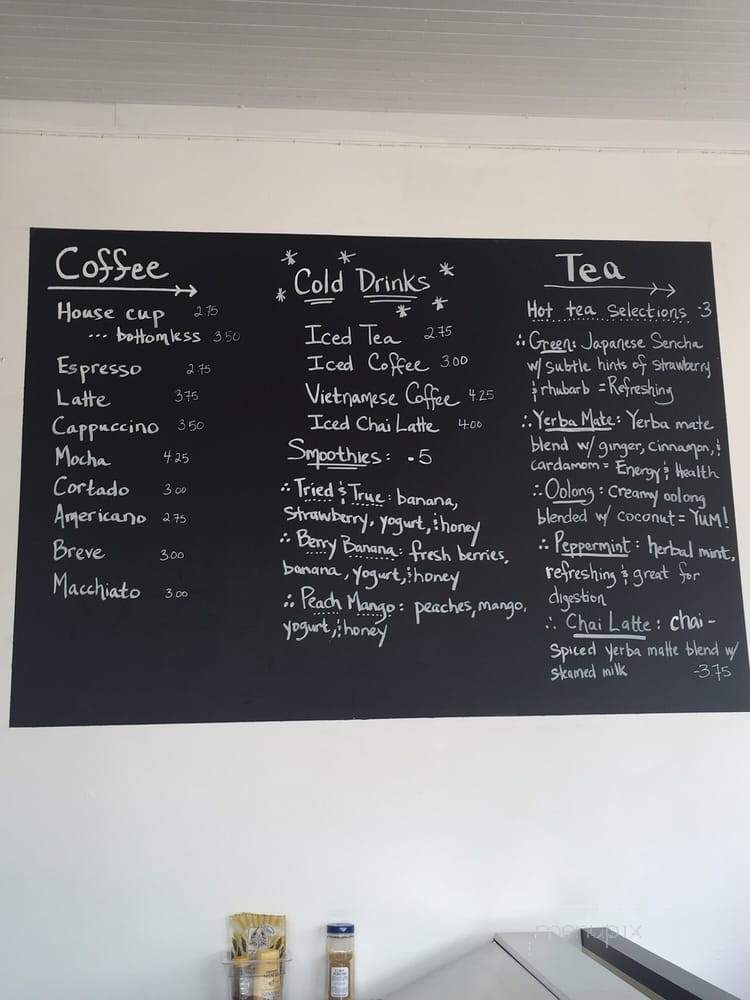 Coffee
House cup 2.75
... bottomless 3.50
Espresso 2.75
Latte 3.75
Cappuccino 3.50
Mocha 4.25
Cortado 3.00
Americano 2.75
Breve 3.00
Macchiato 3.00
Cold Drinks
Iced Tea 2.75
Iced Coffee 3.00
Vietnamese Coffee 4.25
Iced Chai Latte 4.00
Smoothies: -5
∴ Tried & True: banana,
Strawberry, yogurt, & honey
∴ Berry Banana: fresh berries,
banana, yogurt, & honey
∴ Peach Mango: peaches, mango,
yogurt, & honey
Tea
Hot tea selections -3
∴ Green: Japanese Sencha
w/ subtle hints of strawberry
& rhubarb = Refreshing
∴ Yerba Mate: Yerba mate
blend w/ ginger, cinnamon, &
cardamom = Energy & Health
∴ Oolong: creamy oolong
blended w/ coconut = YUM!
∴ Peppermint: herbal mint,
refreshing & great for
digestion
∴ Chai Latte: chai-
spiced yerba matte blend w/
steamed milk -3.75
menupix